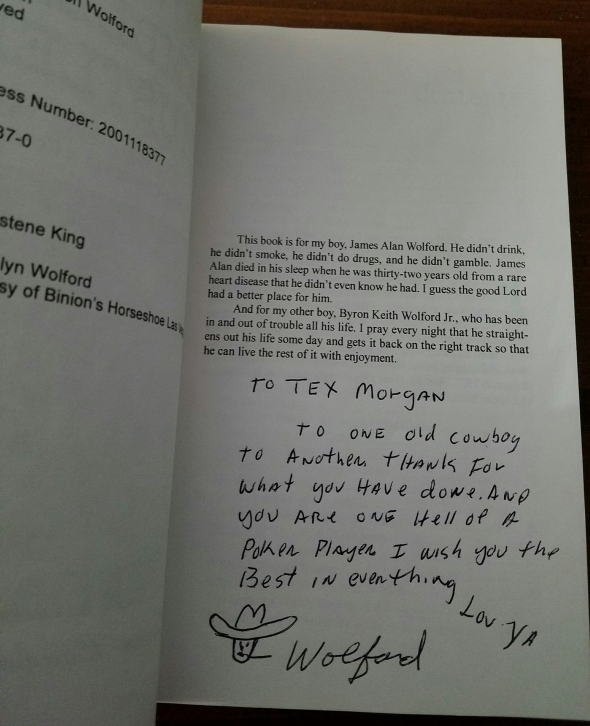 n Wolford
ved
ess Number: 2001118377
37-0
stene King
lyn Wolford
sy of Binion's Horseshoe Las
This book is for my boy, James Alan Wolford. He didn't drink,
he didn't smoke, he didn't do drugs, and he didn't gamble. James
Alan died in his sleep when he was thirty-two years old from a rare
heart disease that he didn't even know he had. I guess the good Lord
had a better place for him.
And for my other boy, Byron Keith Wolford Jr., who has been
in and out of trouble all his life. I pray every night that he straight-
ens out his life some day and gets it back on the right track so that
he can live the rest of it with enjoyment.
TO TEX MorgAN
TO ONE old cowboy
TO ANother tHANk For
what you HAVe doNe. AND
you ARe ONE Hell of A
Poker PlAyer I wish you the
Best IN everything
Lov YA
Wolford